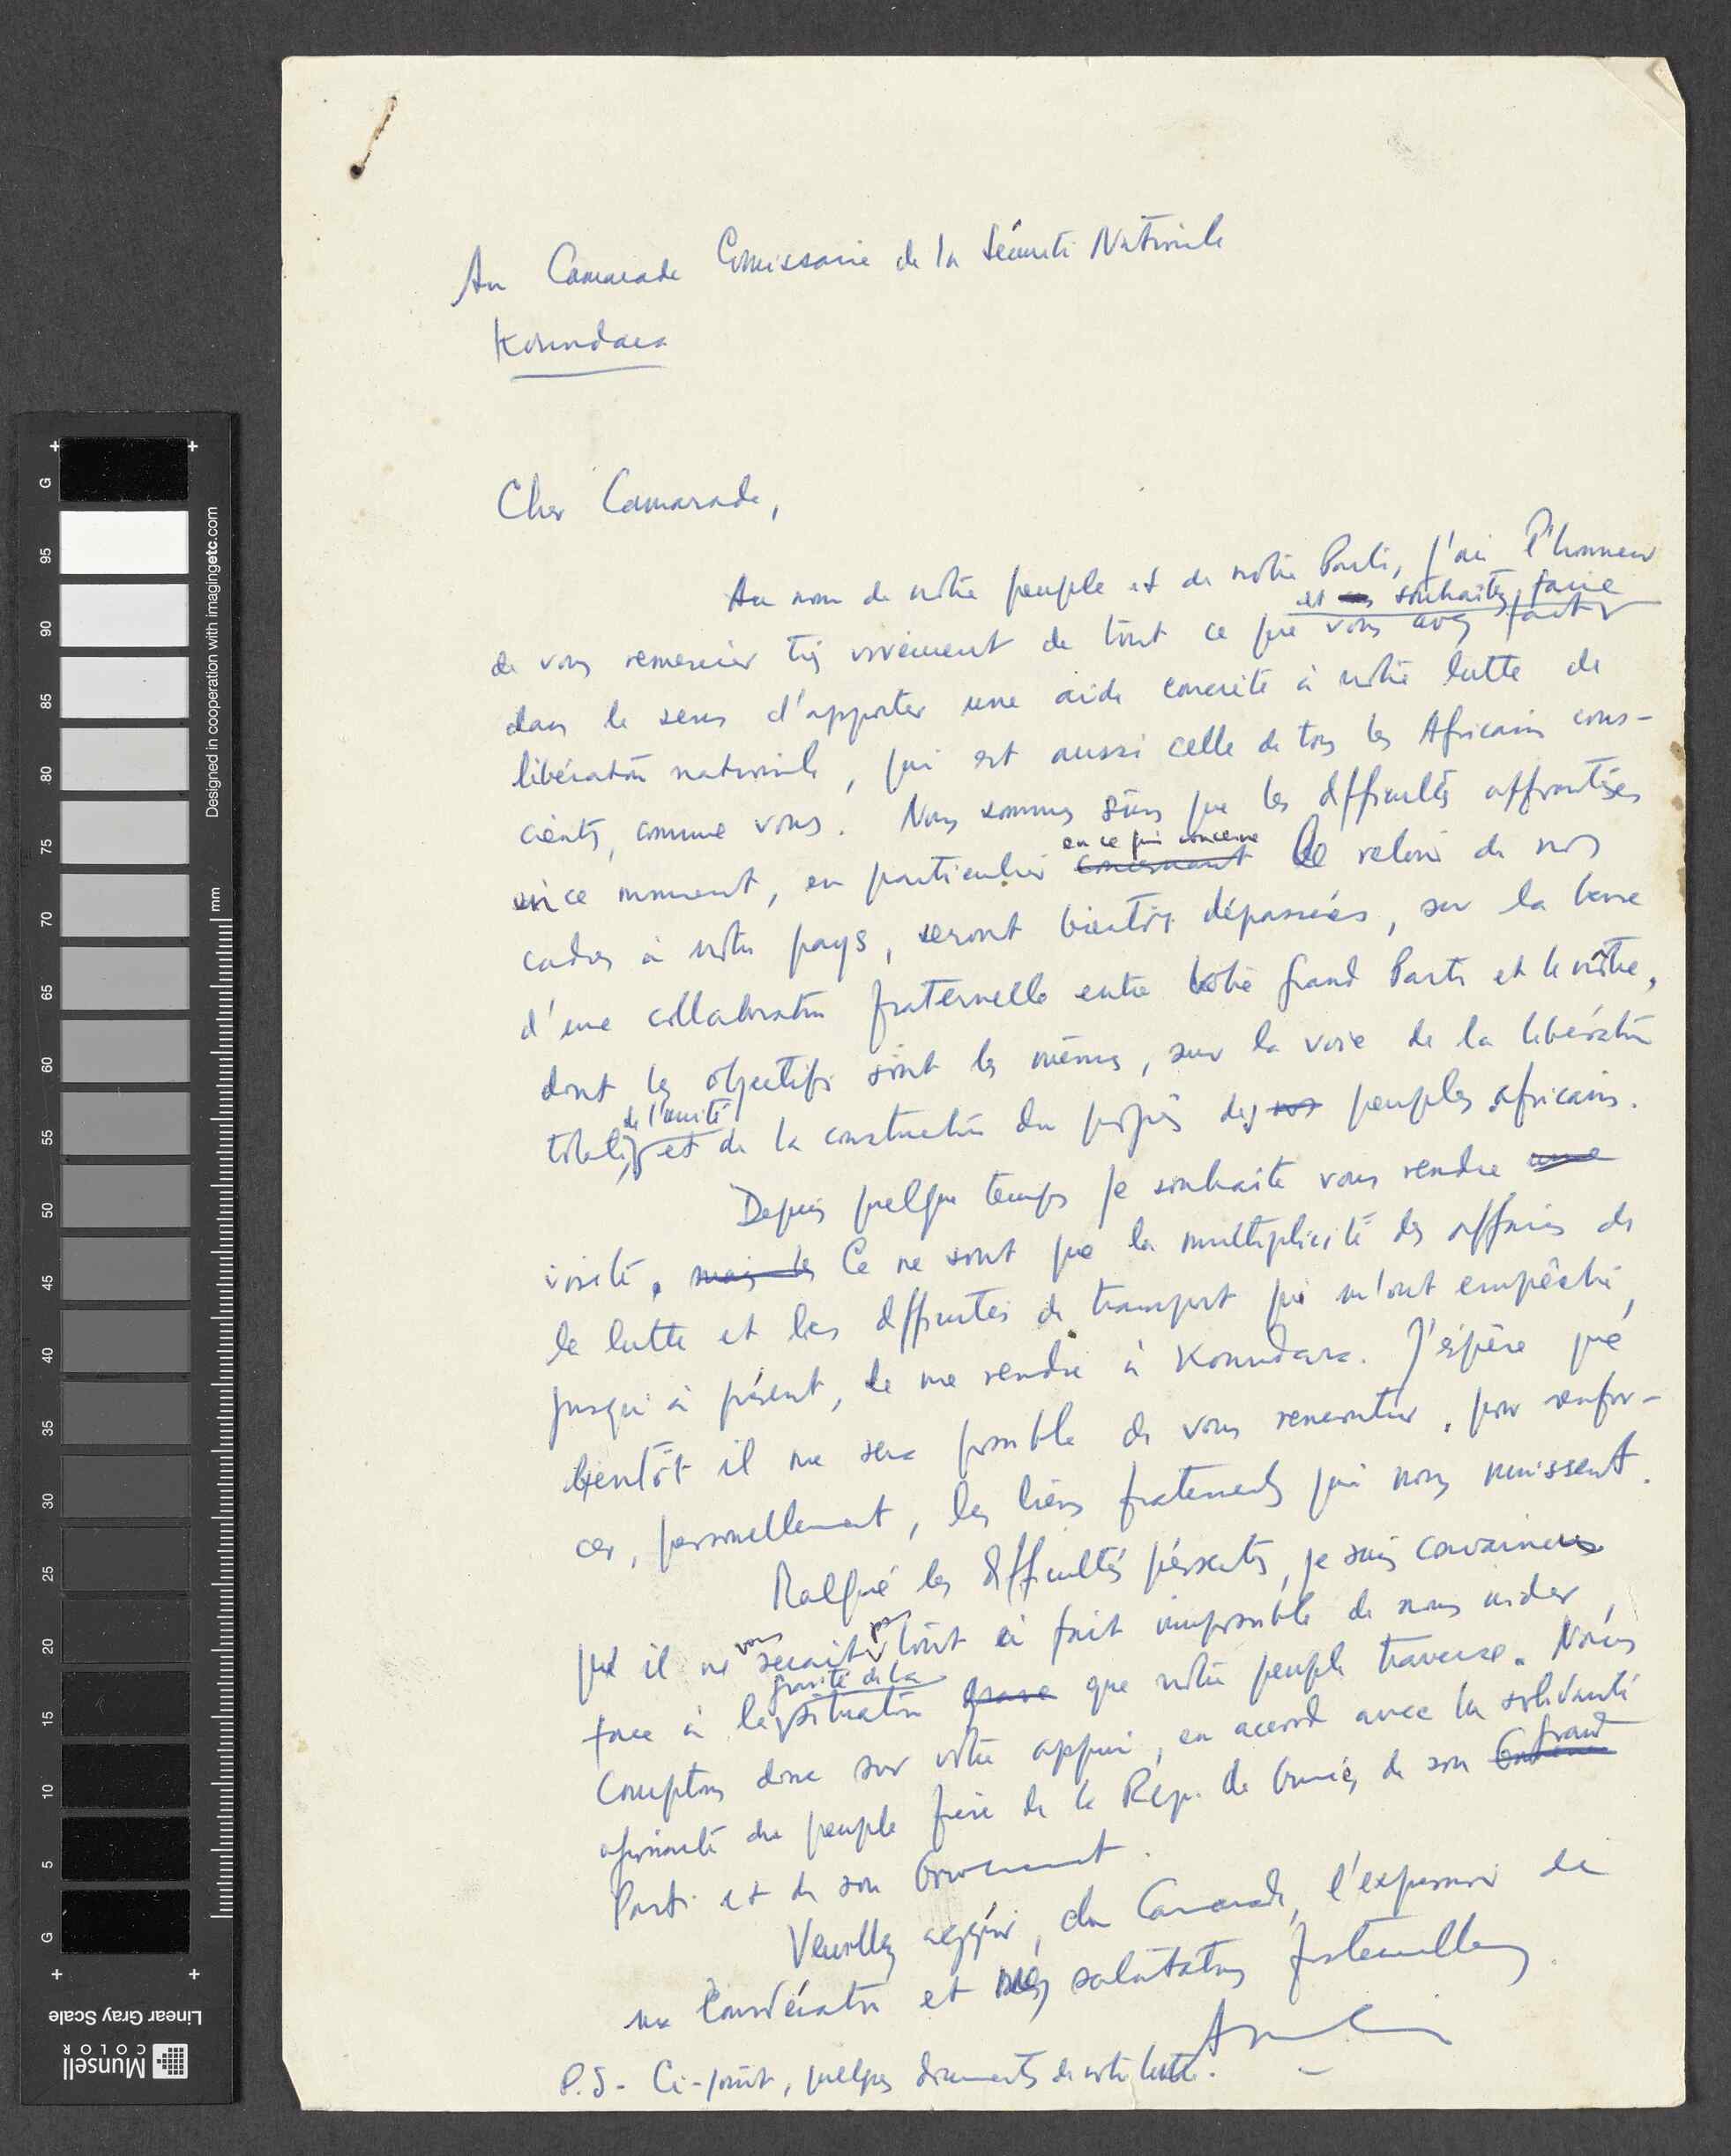 Au Camarade Commissaire de la Sécurité Nationale
Koundara
Cher Camarade,
Au nom de notre peuple et de notre Parti, j'ai l'honneur
et souhaitez faire
de vous remercier très vivement de tout ce que vous avez fait
dans le sens d'apporter une aide concrète à notre lutte de
libération nationale, qui est aussi celle de tous les Africains cons-
cients, comme vous. Nous sommes sûrs que les difficultés affrontées
en ce qui concerne
en ce moment, en particulier concernant le retour de nos
cadres à notre pays, seront bientôt dépassées, sur la base
d'une collaboration fraternelle entre votre grand Parti et le nôtre,
dont les objectifs sont les mêmes, sur la voie de la libération
de l'unité
totale, et de la construction du progrès des nos peuples africains.
Depuis quelque temps je souhaite vous rendre une
visite. mais les Ce ne sont que la multiplicité des affaires de
la lutte et les difficultés de transport qui m'ont empêché,
jusqu'à présent, de me rendre à Koundara. J'espère que
bientôt il me sera possible de vous rencontrer, pour renfor-
cer, personellement, les liens fraternels qui nous unissent.
Malgré les difficultés présentes, je suis convaincu
vous pas
qu'il ne serait tout à fait impossible de nous aider,
gravité de la
face à la situation grave que notre peuple traverse. Nous
comptons donc sur votre appui, en accord avec la solidarité
grand
agissante du peuple frère de la Rép. de Guinée, de son
Parti et de son Gouvernement.
Veuillez agréer, cher Camarade, l'expression de
ma considération et mes salutations fraternelles.
P.S - Ci-joint, quelques documents de notre lutte.